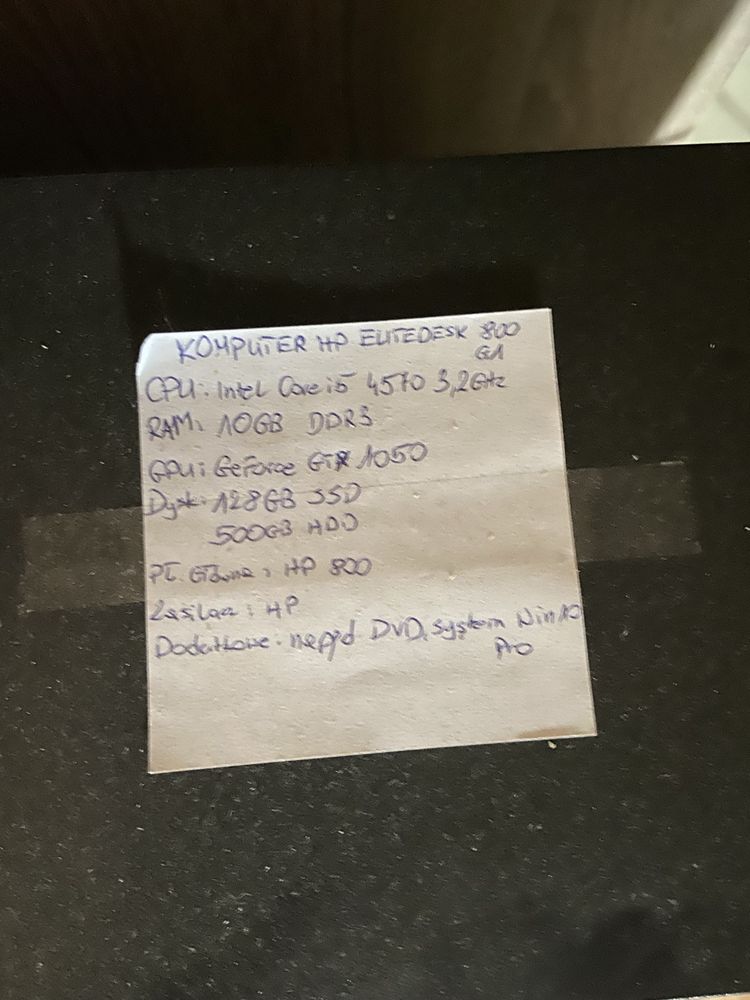 KOMPUTER HP ELITEDESK 800
G1
CPU: Intel Core i5 4570 3,2GHz
RAM: 10GB DDR3
GPU: GeForce GTX 1050
Dysk: 128GB SSD
500GB HDD
Pł. Główna: HP 800
Zasilacz: HP
Dodatkowe: napęd DVD, system Win10
Pro